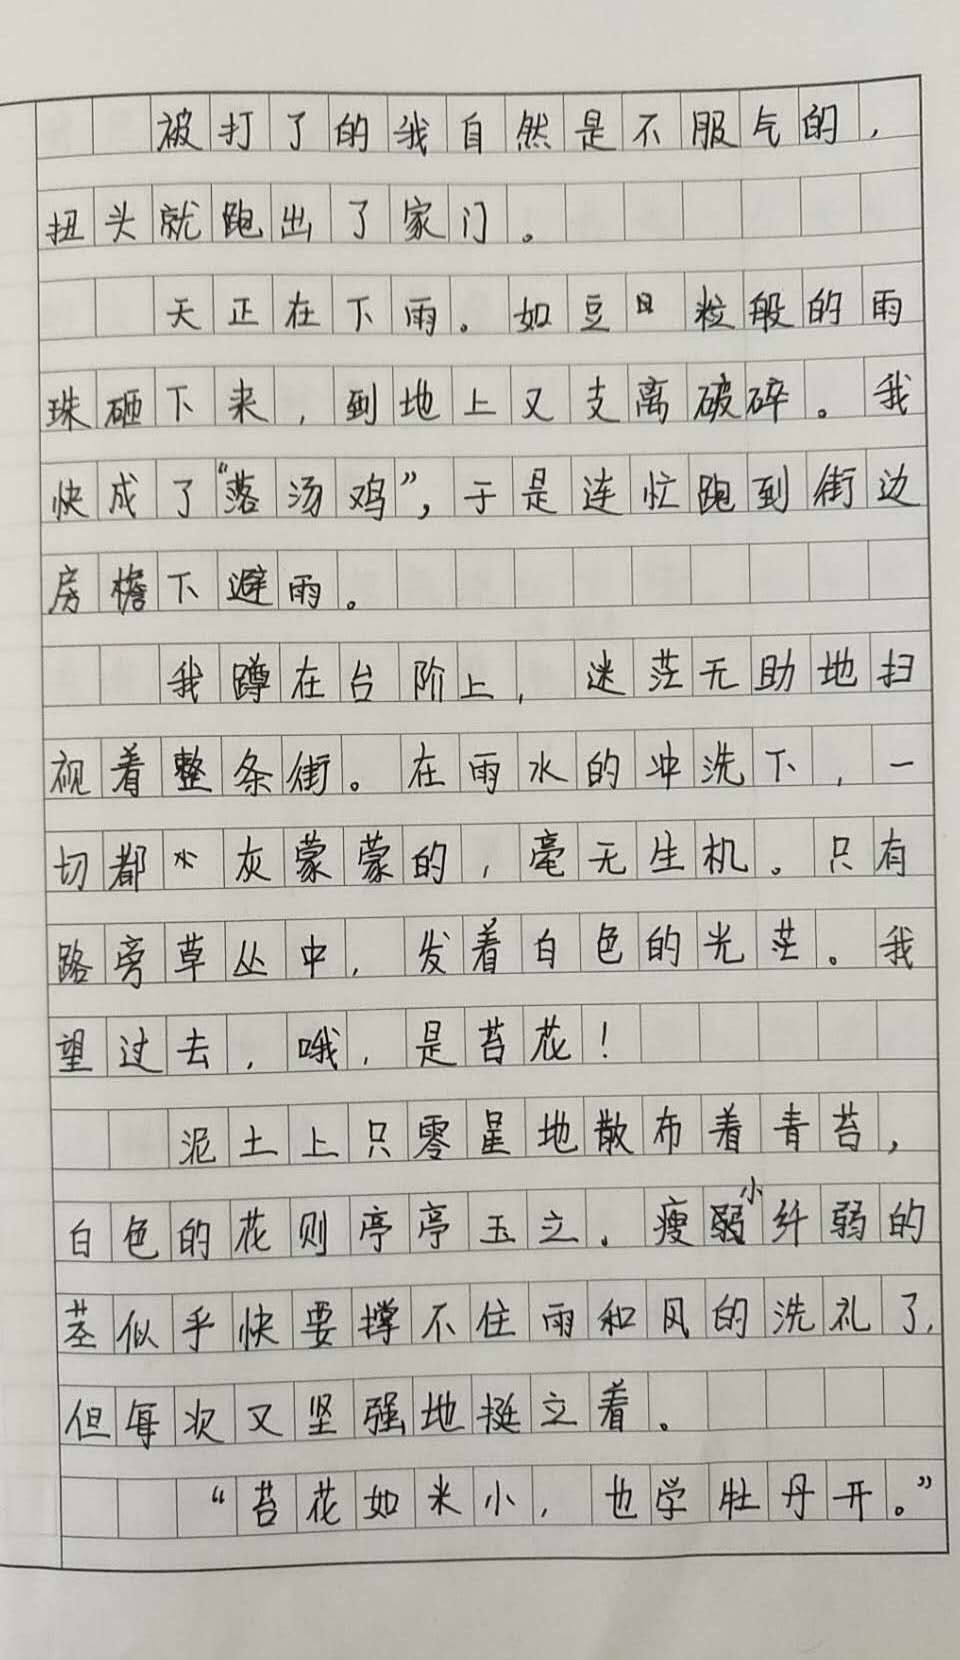 被打了的我自然是不服气的，
扭头就跑出了家门。
天正在下雨。如豆粒般的雨
珠砸下来，到地上又支离破碎。我
快成了“落汤鸡”，于是连忙跑到街边
房檐下避雨。
我蹲在台阶上，迷茫无助地扫
视着整条街。在雨水的冲洗下，一
切都灰蒙蒙的，毫无生机。只有
路旁草丛中，发着白色的光茫。我
望过去，哦，是苔花！
泥土上只零星地散布着青苔，
白色的花则亭亭玉立。瘦小纤弱的
茎似乎快要撑不住雨和风的洗礼了，
但每次又坚强地挺立着。
“苔花如米小，也学牡丹开。”